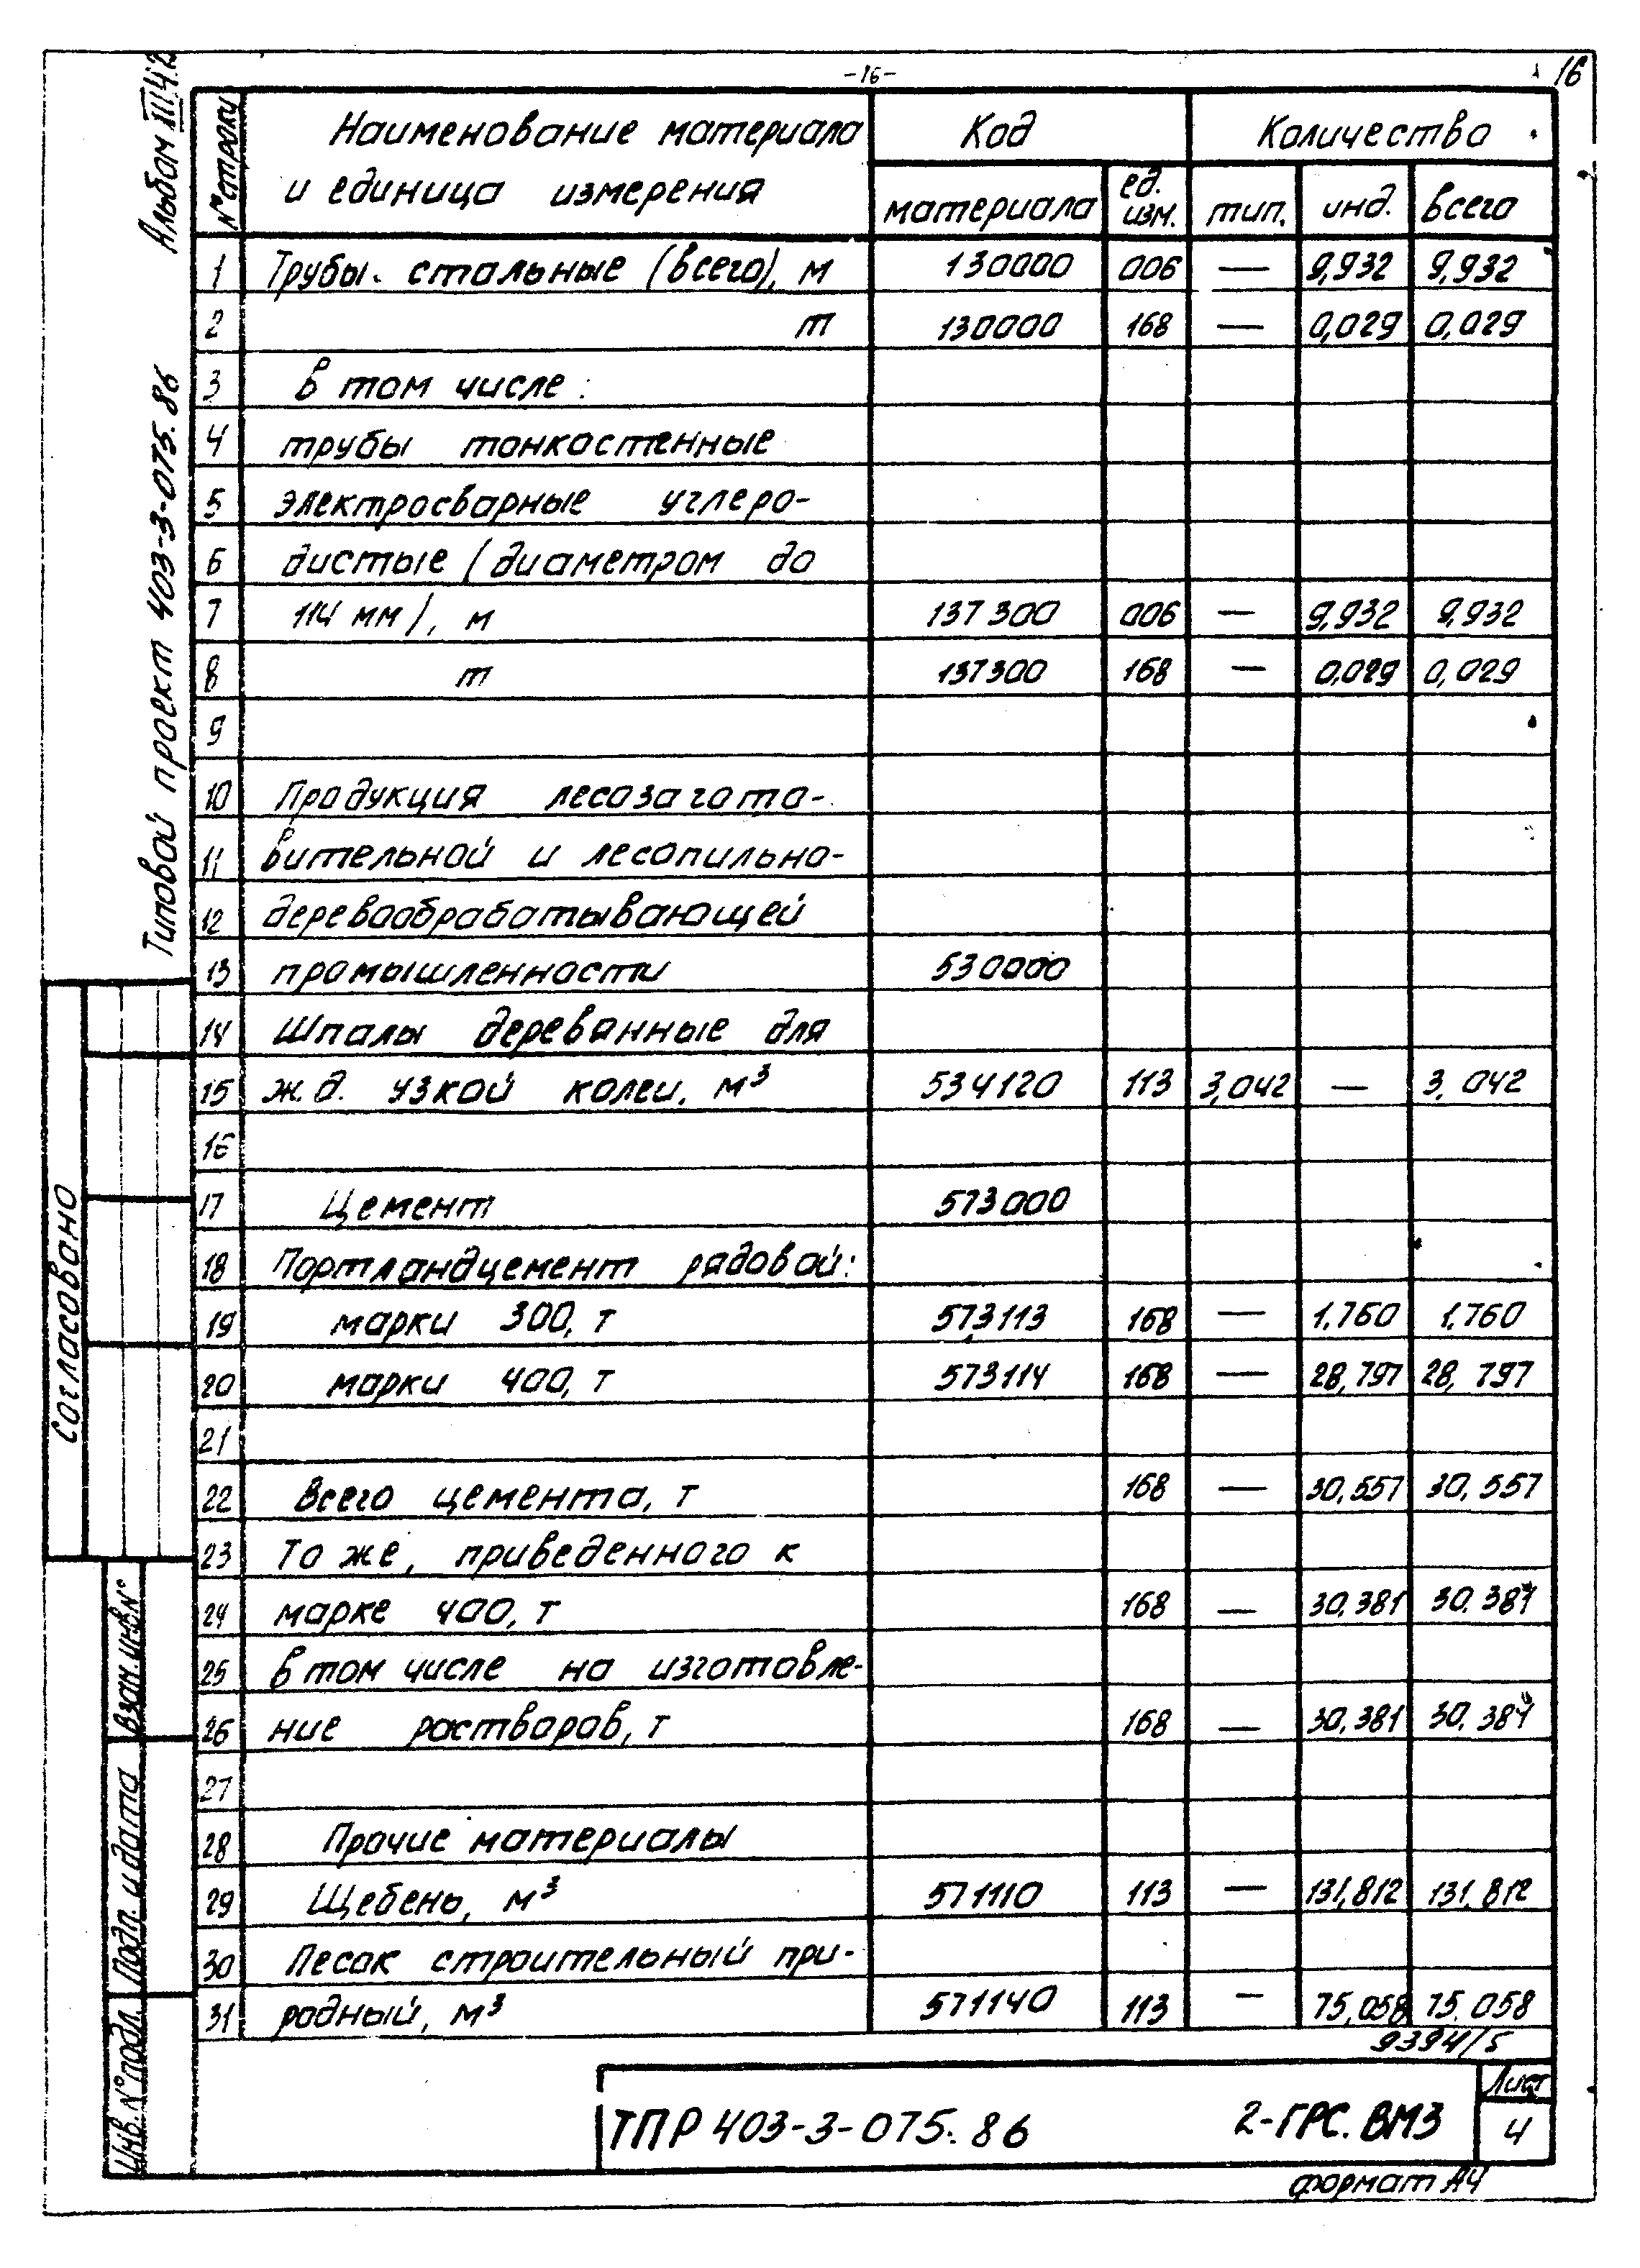 -16-
16
Альбом III.4.2
Типовой проект 403-3-075.86
№ строки
Наименование материала
и единица измерения
Код
Количество
материала
ед.
изм.
тип.
инд.
всего
1 Трубы стальные (всего), м 130000 006 — 9,932 9,932
2 т 130000 168 — 0,029 0,029
3 в том числе:
4 трубы тонкостенные
5 электросварные углеро-
6 дистые (диаметром до
7 114 мм), м 137300 006 — 9,932 9,932
8 т 137300 168 — 0,029 0,029
9
10 Продукция лесозагото-
11 вительной и лесопильно-
12 деревообрабатывающей
13 промышленности 530000
14 Шпалы деревянные для
15 ж.д. узкой колеи, м³ 534120 113 3,042 — 3,042
16
17 Цемент 573000
18 Портландцемент рядовой:
19 марки 300, т 573113 168 — 1,760 1,760
20 марки 400, т 573114 168 — 28,797 28,797
21
22 Всего цемента, т 168 — 30,557 30,557
23 То же, приведенного к
24 марке 400, т 168 — 30,381 30,381
25 в том числе на изготовле-
26 ние растворов, т 168 — 30,381 30,381
27
28 Прочие материалы
29 Щебень, м³ 571110 113 — 131,812 131,812
30 Песок строительный при-
31 родный, м³ 571140 113 — 75,058 75,058
9394/5
Согласовано
Взам. инв. №
Подп. и дата
Инв. № подл.
ТПР 403-3-075.86
2-ГРС.ВМ3
Лист
4
формат А4